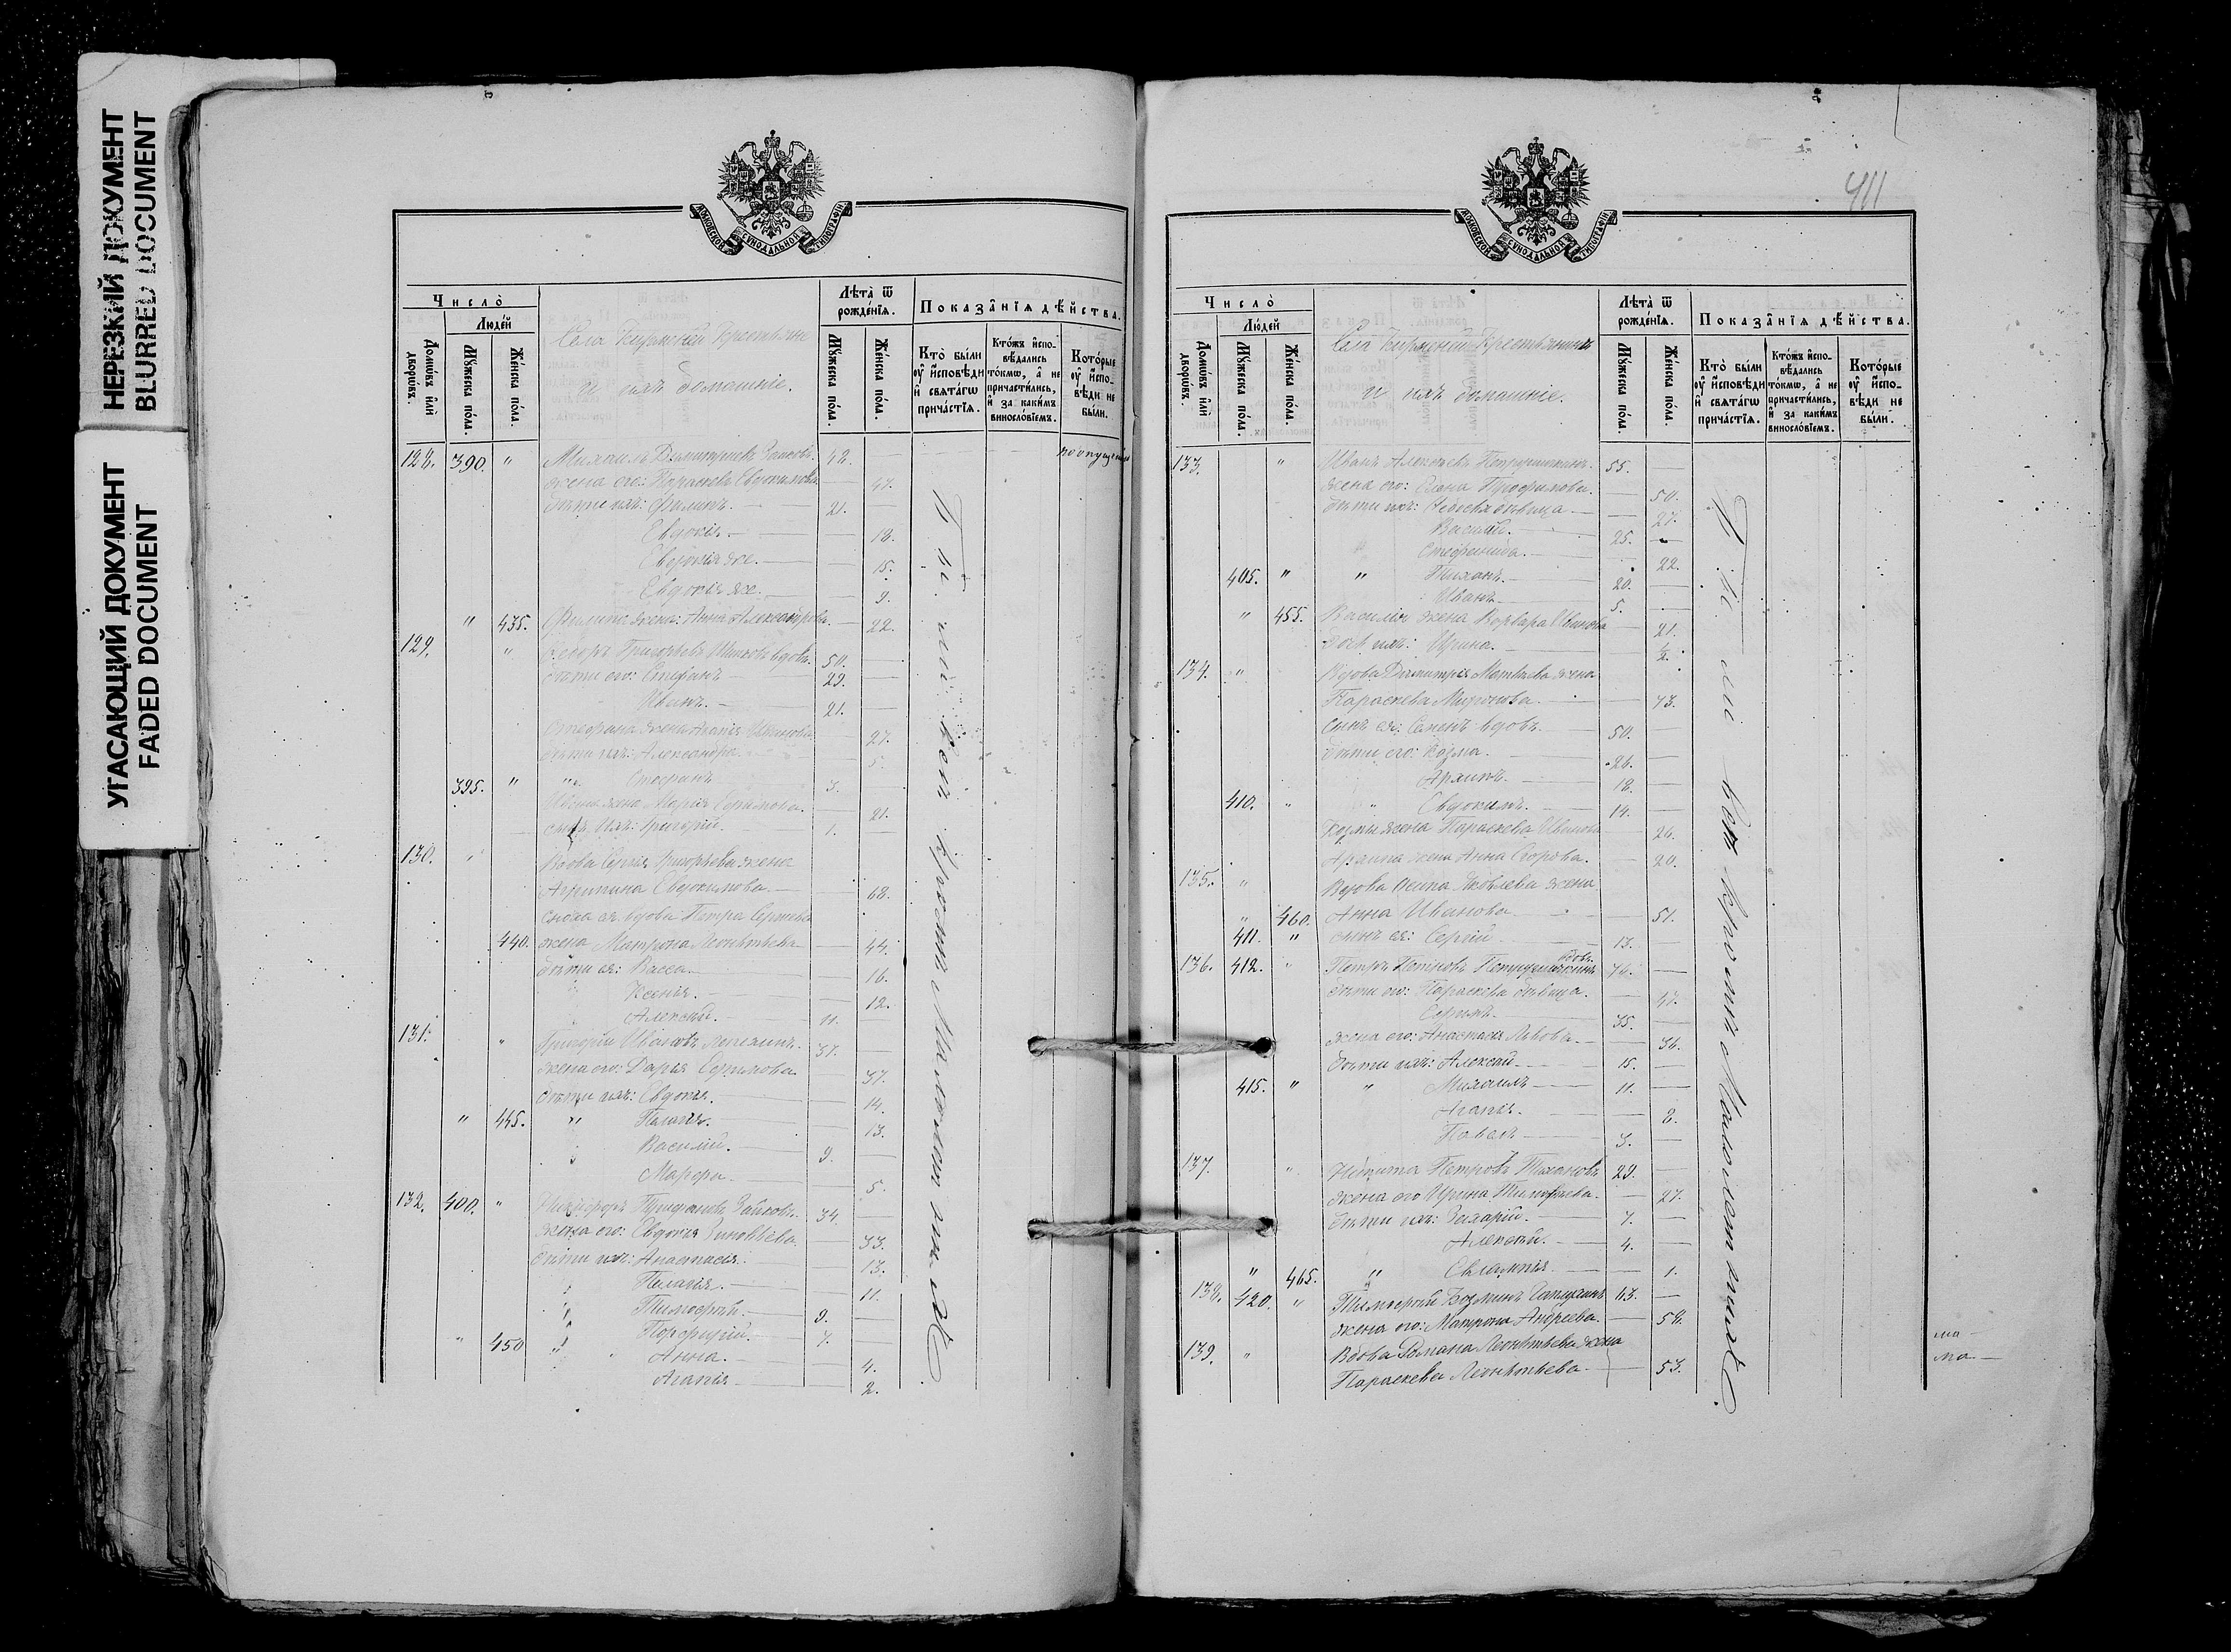 НЕРЕЗКИЙ ДОКУМЕНТ
BLURRED DOCUMENT
УГАСАЮЩИЙ ДОКУМЕНТ
FADED DOCUMENT
МОСКОВСКОЙ СѴНОДАЛЬНОЙ ТИПОГРАФІИ
Число̀
Людей
Домѡвъ и҆лѝ дворѡвъ.
Мꙋжеска по́ла.
Же́нска по́ла.
Села Крестьяне
и ихъ домашніе.
Лѣта̀ ѿ рожде́нїѧ.
Мꙋжеска по́ла.
Же́нска по́ла.
Показа̑нїѧ дѣ́йства.
Кто̀ бы́ли ᲂу҆ и҆сповѣ́ди и҆ свѧта́гѡ прича́стїѧ.
Кто́жъ и҆спо-вѣ́дались то́кмѡ, а҆ не причасти́лись, и҆ за каки́мъ виносло́вїемъ.
Кото́рые ᲂу҆ и҆спо-вѣди не бы́ли.
128. 390. " Михаилъ Димитріевъ 48. по опущенію
жена его: Параскева Евдокимова 47.
дѣти ихъ: Филипъ. 21.
Евдокія. 18.
Евдокія же. 15.
Евдокія же. 9.
" 435. Филипа жена: Анна Александрова 22.
129. " Ѳедоръ Григорьевъ вдовъ. 50.
дѣти его: Стефанъ 29.
Иванъ. 21.
Стефана жена Агапія Иванова 27.
дѣти ихъ: Александра 5.
395. " " Стефанъ 3.
Ивана жена Марія 21.
сынъ ихъ: Григорій. 1.
130. Вдова Сергія Григорьева жена
Агрипина Евдокимова 68.
сноха ея вдова Петра Сергіева
440. жена Матрона Леонтьева 44.
дѣти ея: Васса. 16.
Ксенія. 12.
Алексій. 11.
131. " Григорій Ивановъ 37.
жена его: Дарія 37.
дѣти ихъ: Евдокія. 14.
" 445. " Пелагія. 13.
Василій. 9.
Марфа. 5.
132. 400. " Никифоръ 34.
жена его: Евдокія Зиновьева. 33.
дѣти ихъ: Анастасія. 13.
Пелагія. 11.
Тимофей. 9.
Порфирій. 7.
" 450 " Анна. 4.
Агапія 2.
Были всѣ кромѣ Малолетнихъ
411
Число̀
Людей
Домѡвъ и҆лѝ дворѡвъ.
Мꙋжеска по́ла.
Же́нска по́ла.
Села Крестьяне
и ихъ домашніе.
Лѣта̀ ѿ рожде́нїѧ.
Мꙋжеска по́ла.
Же́нска по́ла.
Показа̑нїѧ дѣ́йства.
Кто̀ бы́ли ᲂу҆ и҆сповѣ́ди и҆ свѧта́гѡ прича́стїѧ.
Кто́жъ и҆спо-вѣ́дались то́кмѡ, а҆ не причасти́лись, и҆ за каки́мъ виносло́вїемъ.
Кото́рые ᲂу҆ и҆спо-вѣди не бы́ли.
133. " Иванъ Алексѣевъ 55.
жена его: Елена Трофимова. 50.
дѣти ихъ: Ѳедосія дѣвица 27.
Василій. 25.
Стефанида. 22.
405. " " Тихонъ. 20.
Иванъ 5.
" 455. Василія жена Варвара Иванова 21.
дочь ихъ: Ирина. ½.
134. " Вдова Димитрія Матвѣева жена
Параскева Миронова. 73.
сынъ ея: Семенъ вдовъ. 50.
дѣти его: Козма. 26.
Архипъ. 18.
410. " " Евдокимъ. 14.
Козмы жена Параскева Иванова 26.
Архипа жена Анна Егорова. 20.
135. " Вдова Осипа Яковлева жена
" 460. Анна Иванова 51.
411. " сынъ ея: Сергій 13.
136. 412. " Петръ вдовъ. 76.
дѣти его: Параскева дѣвица. 47.
35.
жена его: Анастасія Львова. 36.
дѣти ихъ: Алексій 15.
415. " " Михаилъ 11.
Агапія. 8.
Павелъ 3.
137. " Никита Петровъ Тихоновъ 29.
жена его Ирина Тимофеева. 27.
дѣти ихъ: Захарій. 7.
Алексій. 4.
" 465. " Евлампія 1.
138. 420. " Тимофей Козминъ 63.
жена его: Матрона Андреева. 58.
139. " Вдова Романа Леонтьева жена
Параскева Леонтьева 53.
Были всѣ кромѣ Малолетнихъ